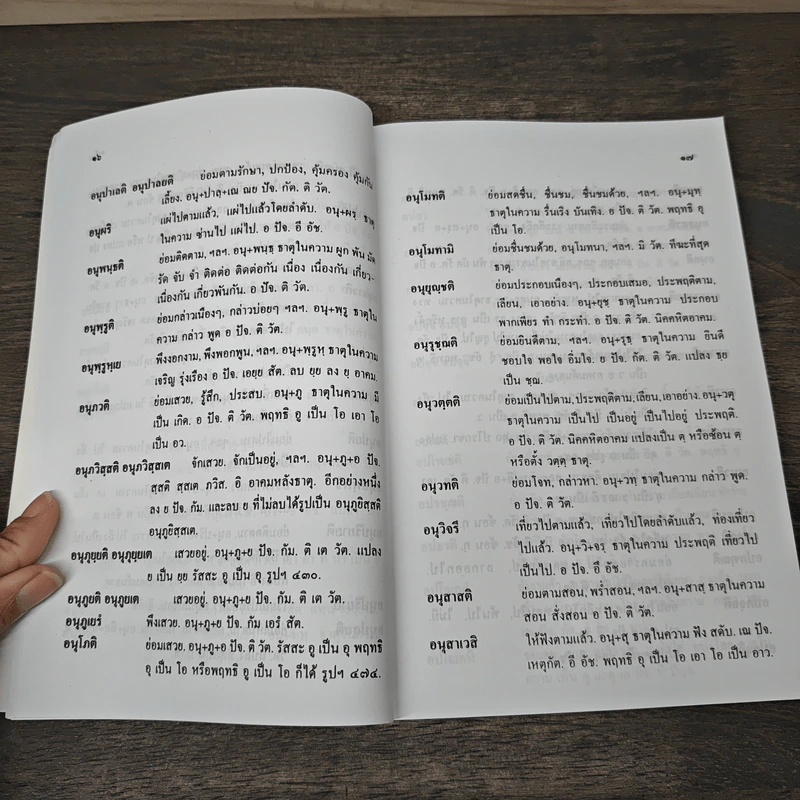 ๑๖
อนุปาเลติ อนุปาลยติ ย่อมตามรักษา, ปกป้อง, คุ้มครอง คุ้มกัน
เลี้ยง. อนุ+ปาลฺ+เณ ณย ปัจ. กัต. ติ วัต.
อนุผริ แผ่ไปตามแล้ว, แผ่ไปแล้วโดยลำดับ. อนุ+ผรฺ ธาตุ
ในความ ซ่านไป แผ่ไป. อ ปัจ. อี อัช.
อนุพนฺธติ ย่อมติดตาม, ฯลฯ. อนุ+พนฺธฺ ธาตุในความ ผูก พัน มัด
รัด จับ จำ ติดต่อ ติดต่อกัน เนื่อง เนื่องกัน เกี่ยว-
เนื่องกัน เกี่ยวพันกัน. อ ปัจ. ติ วัต.
อนุพฺรูติ ย่อมกล่าวเนืองๆ, กล่าวบ่อยๆ ฯลฯ. อนุ+พฺรู ธาตุใน
ความ กล่าว พูด อ ปัจ. ติ วัต.
อนุพฺรูหฺเย พึงงอกงาม, พึงพอกพูน, ฯลฯ. อนุ+พฺรูหฺ ธาตุในความ
เจริญ รุ่งเรือง อ ปัจ. เอยฺย สัต. ลบ ยฺย ลง ย อาคม.
อนุภวติ ย่อมเสวย, รู้สึก, ประสบ. อนุ+ภู ธาตุในความ มี
เป็น เกิด. อ ปัจ. ติ วัต. พฤทธิ อู เป็น โอ เอา โอ
เป็น อว.
อนุภวิสฺสติ อนุภวิสฺสเต จักเสวย. จักเป็นอยู่, ฯลฯ. อนุ+ภู+อ ปัจ.
สฺสติ สฺสเต ภวิส. อิ อาคมหลังธาตุ. อีกอย่างหนึ่ง
ลง ย ปัจ. กัม. และลบ ย ที่ไม่ลบได้รูปเป็น อนุภูยิสฺสติ
อนุภูยิสฺสเต.
อนุภุยฺยติ อนุภุยฺยเต เสวยอยู่. อนุ+ภู+ย ปัจ. กัม. ติ เต วัต. แปลง
ย เป็น ยฺย รัสสะ อู เป็น อุ รูปฯ ๔๓๐.
อนุภูยติ อนุภูยเต เสวยอยู่. อนุ+ภู+ย ปัจ. กัม. ติ เต วัต.
อนุภูเยรํ พึงเสวย. อนุ+ภู+ย ปัจ. กัม เอรํ สัต.
อนุโภติ ย่อมเสวย. อนุ+ภู+อ ปัจ. ติ วัต. รัสสะ อู เป็น อุ พฤทธิ
อุ เป็น โอ หรือพฤทธิ อู เป็น โอ ก็ได้ รูปฯ ๔๗๔.
๑๗
อนุโมทติ ย่อมสดชื่น, ชื่นชม, ชื่นชมด้วย, ฯลฯ. อนุ+มุทฺ
ธาตุในความ รื่นเริง บันเทิง. อ ปัจ. ติ วัต. พฤทธิ อุ
เป็น โอ.
อนุโมทามิ ย่อมชื่นชมด้วย, อนุโมทนา, ฯลฯ. มิ วัต. ทีฆะที่สุด
ธาตุ.
อนุยุญฺชติ ย่อมประกอบเนืองๆ, ประกอบเสมอ, ประพฤติตาม,
เลียน, เอาอย่าง. อนุ+ยุชฺ ธาตุในความ ประกอบ
พากเพียร ทำ กระทำ. อ ปัจ. ติ วัต. นิคคหิตอาคม.
อนุรุชฺฌติ ย่อมยินดีตาม, ฯลฯ. อนุ+รุธฺ ธาตุในความ ยินดี
ชอบใจ พอใจ อิ่มใจ. ย ปัจ. กัต. ติ วัต. แปลง ธฺย
เป็น ชฺฌ.
อนุวตฺตติ ย่อมเป็นไปตาม, ประพฤติตาม, เลียน, เอาอย่าง. อนุ+วตฺ
ธาตุในความ เป็นไป เป็นอยู่ เป็นไปอยู่ ประพฤติ.
อ ปัจ. ติ วัต. นิคคหิตอาคม แปลงเป็น ตฺ หรือซ้อน ตฺ
หรือตั้ง วตฺตฺ ธาตุ.
อนุวทติ ย่อมโจท, กล่าวหา. อนุ+วทฺ ธาตุในความ กล่าว พูด.
อ ปัจ. ติ วัต.
อนุวิจรึ เที่ยวไปตามแล้ว, เที่ยวไปโดยลำดับแล้ว, ท่องเที่ยว
ไปแล้ว. อนุ+วิ+จรฺ ธาตุในความ ประพฤติ เที่ยวไป
เป็นไป. อ ปัจ. อึ อัช.
อนุสาสติ ย่อมตามสอน, พร่ำสอน, ฯลฯ. อนุ+สาสฺ ธาตุในความ
สอน สั่งสอน อ ปัจ. ติ วัต.
อนุสาเวสิ ให้ฟังตามแล้ว. อนุ+สุ ธาตุในความ ฟัง สดับ. เณ ปัจ.
เหตุกัต. อี อัช. พฤทธิ อุ เป็น โอ เอา โอ เป็น อาว.